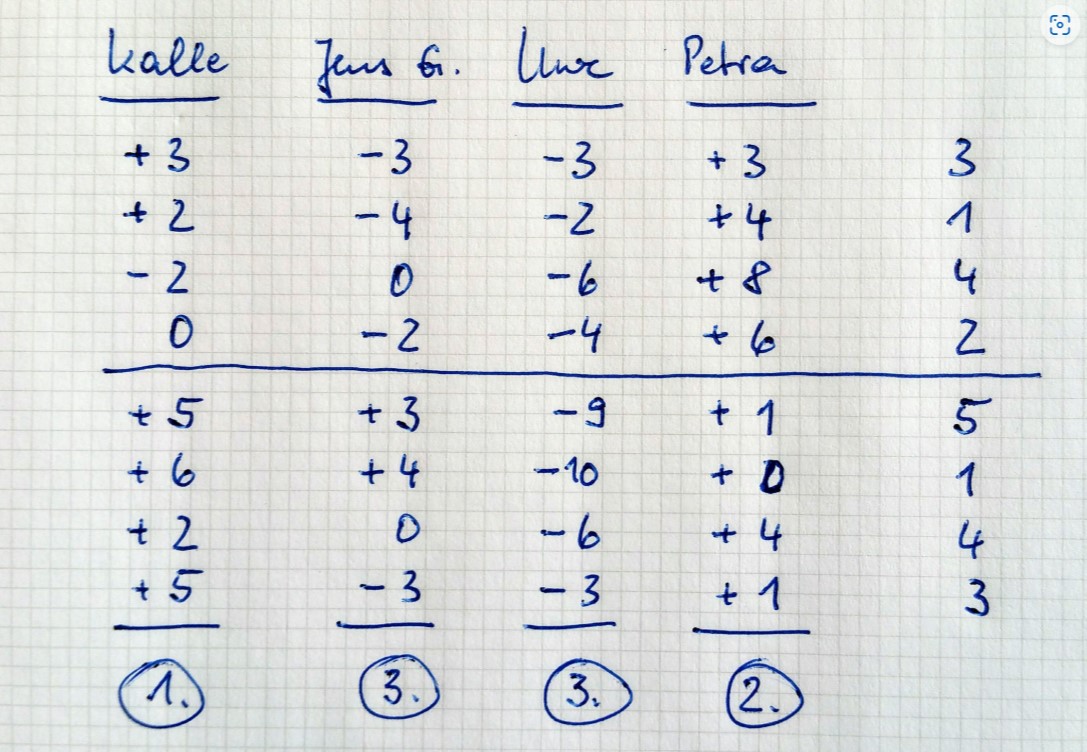 Kalle Jens G. Uwe Petra
+3 -3 -3 +3 3
+2 -4 -2 +4 1
-2 0 -6 +8 4
0 -2 -4 +6 2
+5 +3 -9 +1 5
+6 +4 -10 +0 1
+2 0 -6 +4 4
+5 -3 -3 +1 3
1. 3. 3. 2.